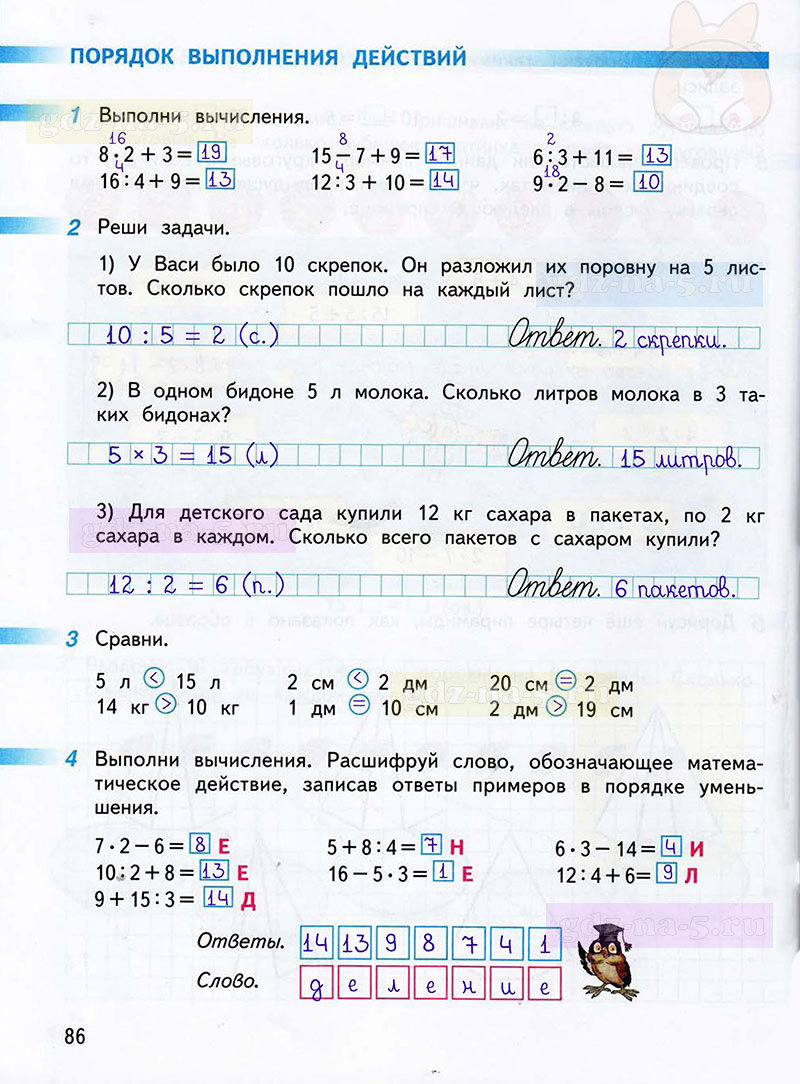 ПОРЯДОК ВЫПОЛНЕНИЯ ДЕЙСТВИЙ
1 Выполни вычисления.
16 8 2
8·2 + 3 = 19 15 – 7 + 9 = 17 6:3 + 11 = 13
4 4 18
16:4 + 9 = 13 12:3 + 10 = 14 9·2 – 8 = 10
2 Реши задачи.
1) У Васи было 10 скрепок. Он разложил их поровну на 5 лис-
тов. Сколько скрепок пошло на каждый лист?
10 : 5 = 2 (с.) Ответ. 2 скрепки.
2) В одном бидоне 5 л молока. Сколько литров молока в 3 та-
ких бидонах?
5 × 3 = 15 (л) Ответ. 15 литров.
3) Для детского сада купили 12 кг сахара в пакетах, по 2 кг
сахара в каждом. Сколько всего пакетов с сахаром купили?
12 : 2 = 6 (п.) Ответ. 6 пакетов.
3 Сравни.
5 л < 15 л 2 см < 2 дм 20 см = 2 дм
14 кг > 10 кг 1 дм = 10 см 2 дм > 19 см
4 Выполни вычисления. Расшифруй слово, обозначающее матема-
тическое действие, записав ответы примеров в порядке умень-
шения.
7·2 – 6 = 8 Е 5 + 8:4 = 7 Н 6·3 – 14 = 4 И
10:2 + 8 = 13 Е 16 – 5·3 = 1 Е 12:4 + 6 = 9 Л
9 + 15:3 = 14 Д
Ответы. 14 13 9 8 7 4 1
Слово. д е л е н и е
86
gdz-na-5.ru
gdz-na-5.ru
gdz-na-5.ru
gdz-na-5.ru
gdz-na-5.ru